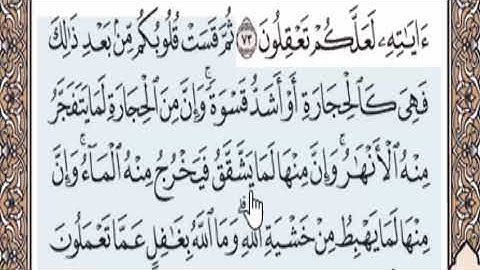 ءَايَـٰتِهِۦ لَعَلَّكُمْ تَعْقِلُونَ ٧٣ ثُمَّ قَسَتْ قُلُوبُكُم مِّنۢ بَعْدِ ذَٰلِكَ
فَهِىَ كَٱلْحِجَارَةِ أَوْ أَشَدُّ قَسْوَةً ۚ وَإِنَّ مِنَ ٱلْحِجَارَةِ لَمَا يَتَفَجَّرُ
مِنْهُ ٱلْأَنْهَـٰرُ ۚ وَإِنَّ مِنْهَا لَمَا يَشَّقَّقُ فَيَخْرُجُ مِنْهُ ٱلْمَآءُ ۚ وَإِنَّ
مِنْهَا لَمَا يَهْبِطُ مِنْ خَشْيَةِ ٱللَّهِ ۗ وَمَا ٱللَّهُ بِغَـٰفِلٍ عَمَّا تَعْمَلُونَ